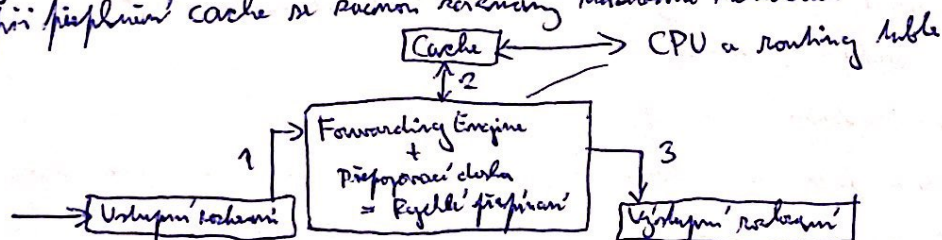 přeplnění cache se začnou záznamy
Cache
CPU a routing table
2
Forwarding Engine
+
Přepojovací deska
= Rychlé přepínání
1
3
Vstupní rozhraní
Výstupní rozhraní